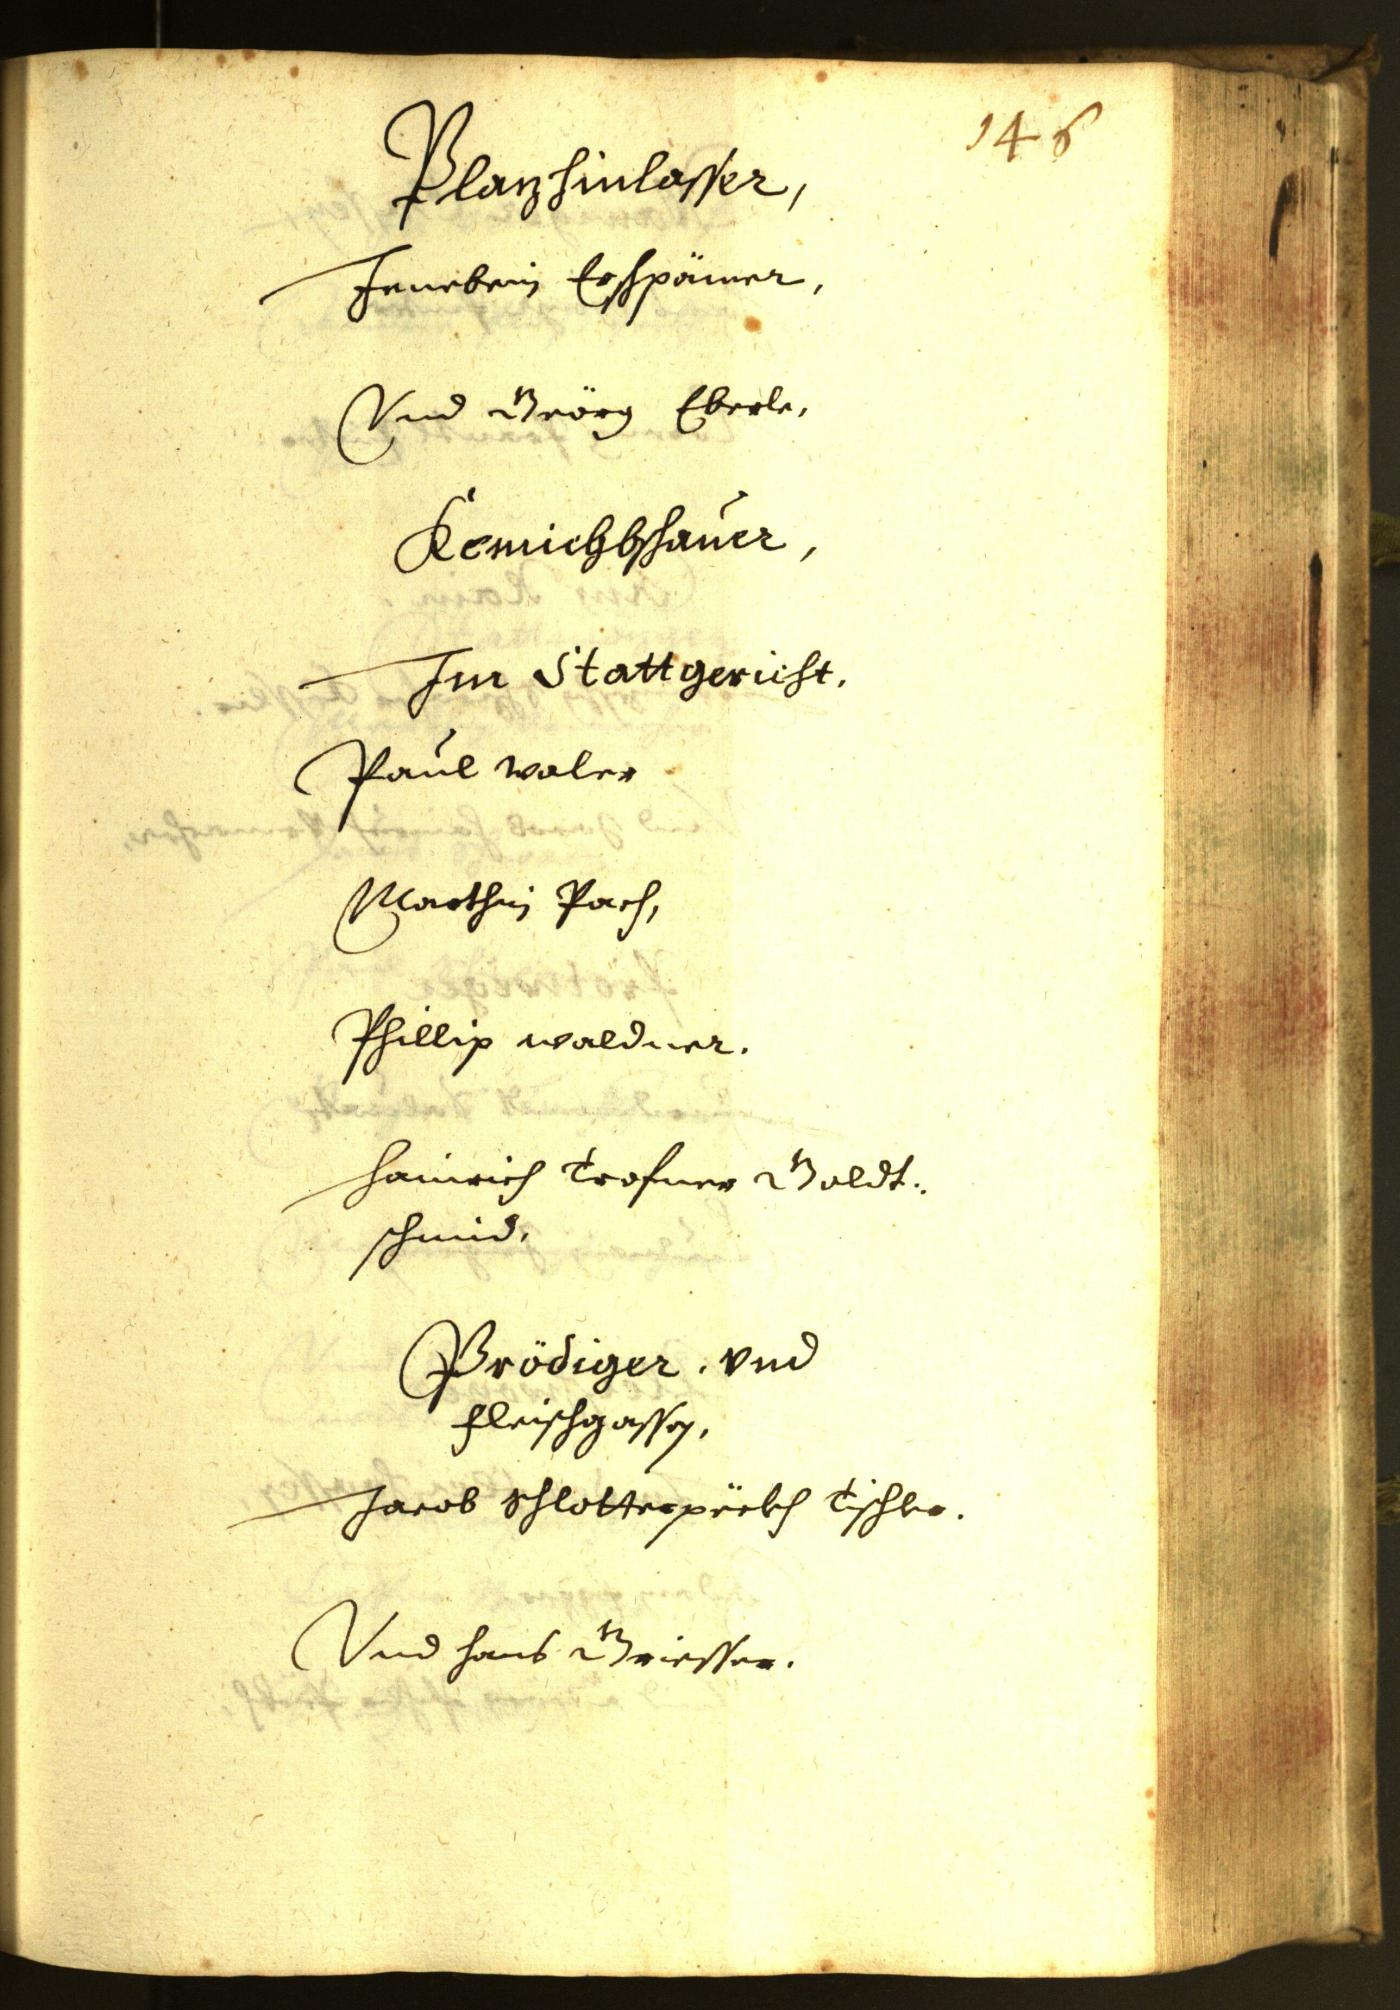 146
Plazhinlasser,
Jenebein Esshpämer,
Vnd Geörg Eberle,
Kemichbschauer,
Jm Stattgericht.
Paul waler
Marthin Pach,
Phillip waldner.
Hainrich Trofner Goldt:
schmid,
Prödiger. vnd
Fleischgassen,
Jacob Schlotterpëckh Tischler.
Vnd Hans Griesser.